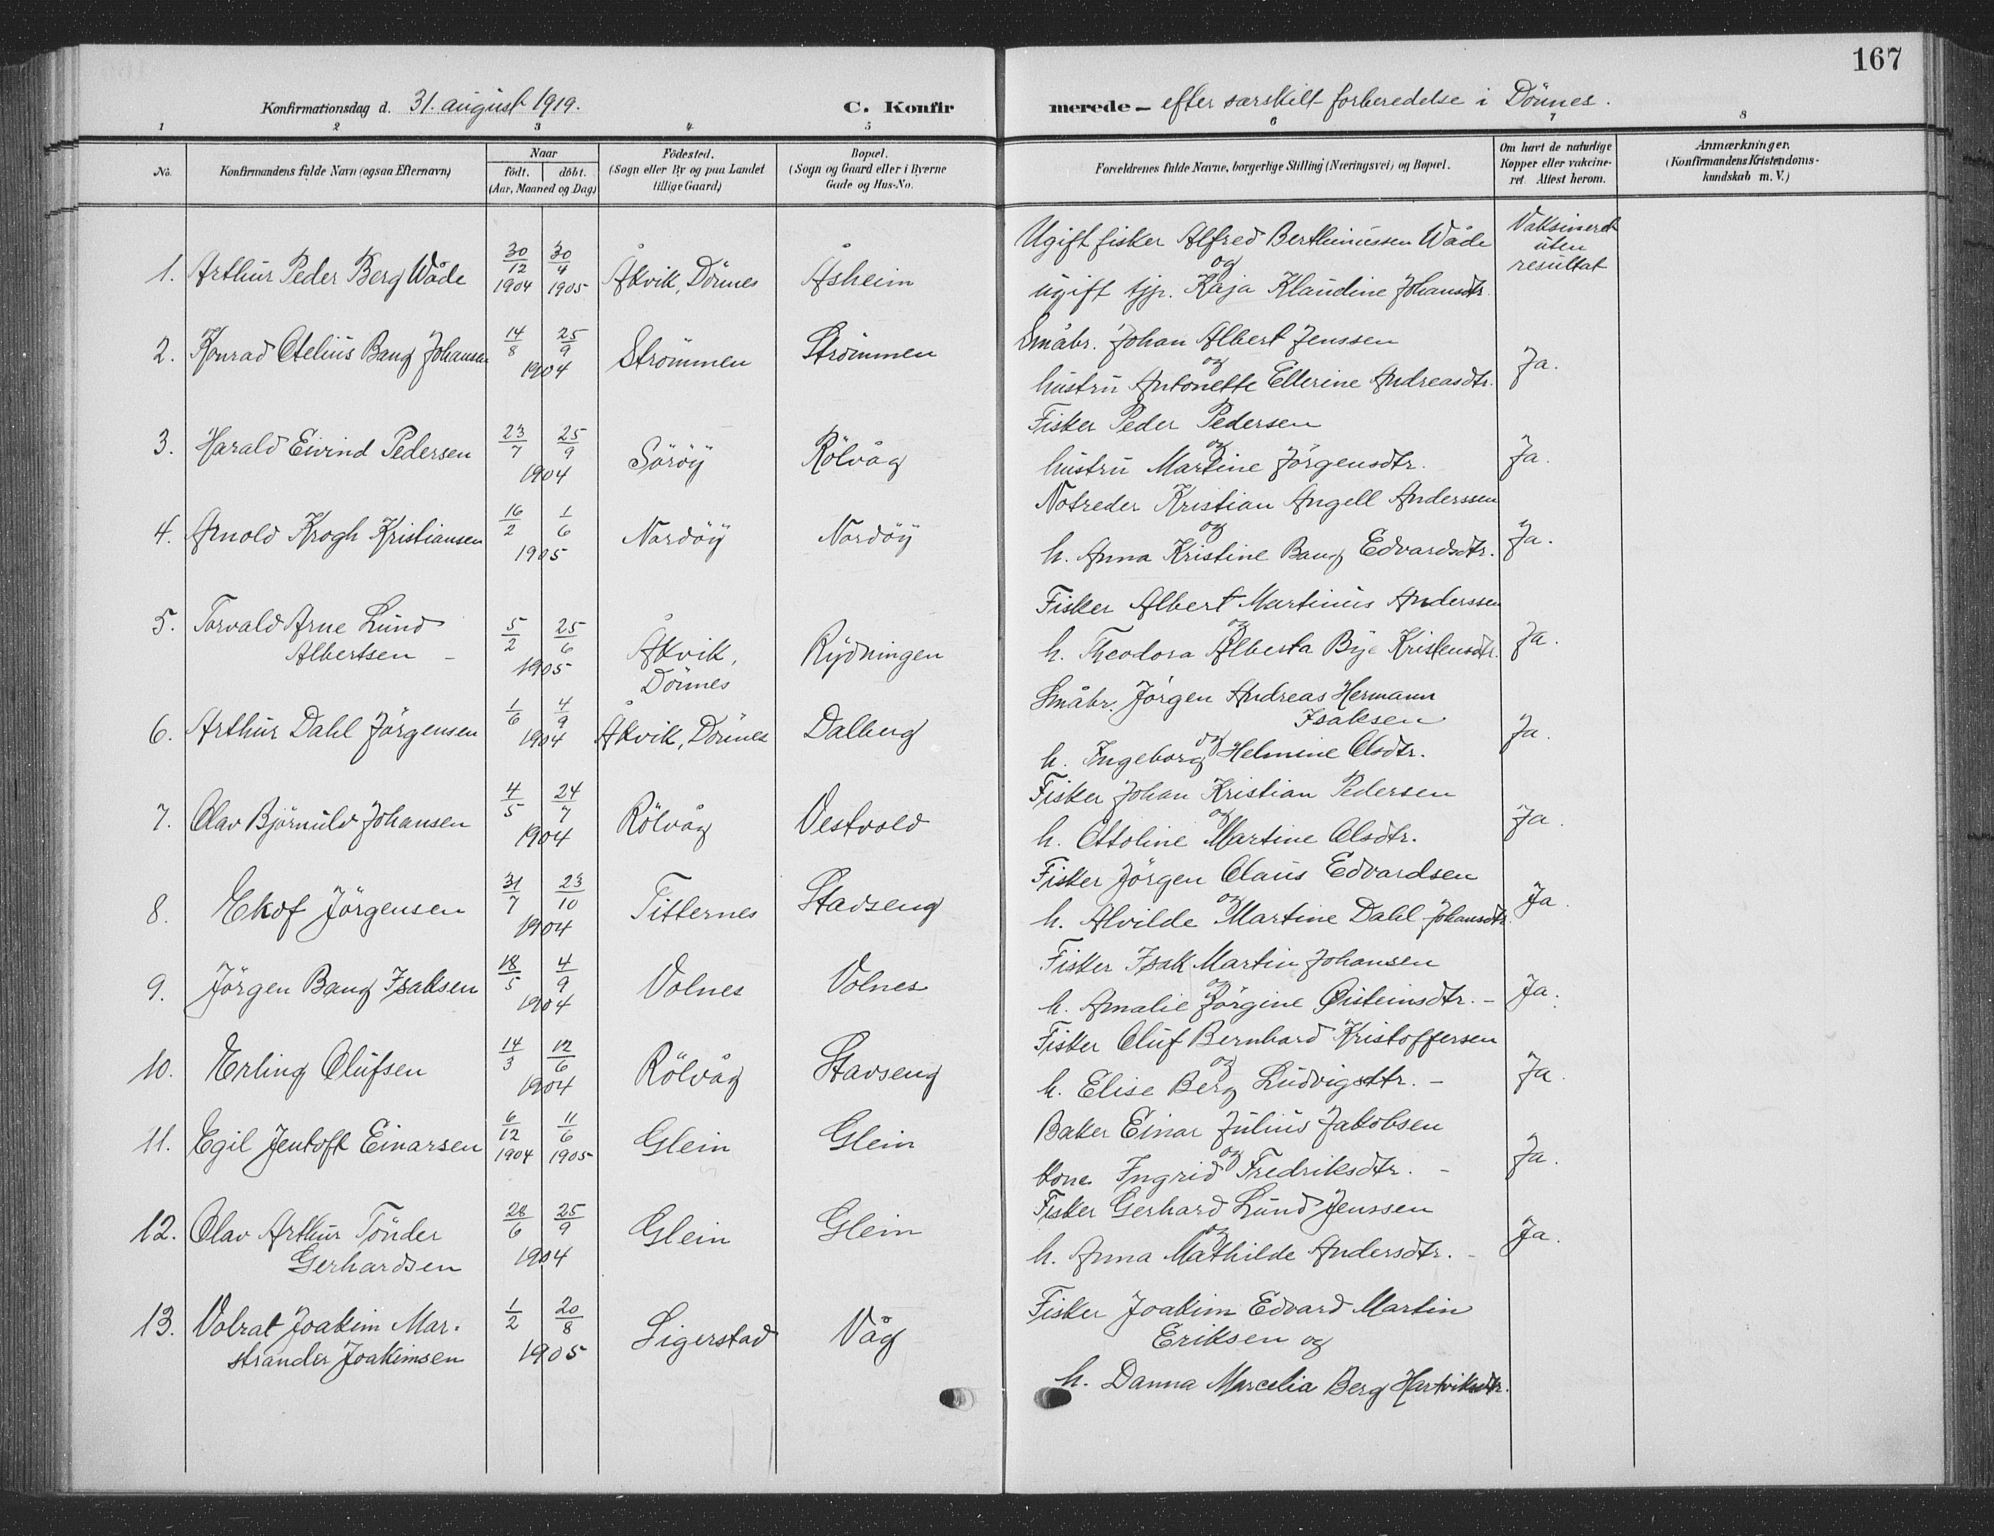 167
Konfirmationsdag d. 31. august 1919. C. Konfirmerede – efter særskilt forberedelse i Dönnes.
1 2 3 4 5 6 7 8
No. Konfirmandens fulde Navn (ogsaa Efternavn) Naar født. døbt. (Aar, Maaned og Dag) Födested. (Sogn eller By og paa Landet tillige Gaard) Bopæl. (Sogn og Gaard eller i Byerne Gade og Hus-No. Forældrenes fulde Navne, borgerlige Stilling (Næringsvei) og Bopæl. Om havt de naturlige Kopper eller vakcineret. Attest herom. Anmærkninger. (Konfirmandens Kristendomskundskab m. V.)
1. Arthur Peder Berg Wåde 30/12 1904 30/4 1905 Åkvik, Dönnes Åsheim Ugift fisker Alfred Berthinussen Wåde Vaksineret
og uten
ugift tjp. Kaja Klaudine Johansdtr. resultat
2. Konrad Otelius Bang Johansen 14/8 25/9 1904 Strömmen Strömmen Småbr. Johan Albert Jenssen
og
hustru Antonette Ellerine Andreasdtr. Ja.
3. Harald Eivind Pedersen 23/7 25/9 1904 Söröy Rölvåg Fisker Peder Pedersen
og
hustru Martine Jörgensdtr. Ja.
4. Arnold Krogh Kristiansen 16/2 1/6 1905 Nordöy Nordöy Notreder Kristian Angell Anderssen
og
h. Anna Kristine Bang Edvardsdtr. Ja.
5. Torvald Arne Lund 5/2 25/6 1905 Åkvik, Rydningen Fisker Albert Martinus Anderssen
Albertsen – Dönnes og
h. Theodora Alberta Bye Kristensdtr. Ja.
6. Arthur Dahl Jörgensen 1/6 4/9 1904 Åkvik, Dönnes Dalberg Småbr. Jörgen Andreas Hermann
Isaksen
og
h. Ingeborg Helmine Olsdtr. Ja.
7. Olav Björnulv Johansen 4/5 24/7 1904 Rölvåg Vestvold Fisker Johan Kristian Pedersen
og
h. Ottoline Martine Olsdtr. Ja.
8. Ekof Jörgensen 31/7 23/10 1904 Titternes Stavseng Fisker Jörgen Olaus Edvardsen
og
h. Alvilde Martine Dahl Johansdtr. Ja.
9. Jörgen Bang Isaksen 18/5 4/9 1904 Volnes Volnes Fisker Isak Martin Johansen
og
h. Amalie Jörgine Øisteinsdtr. – Ja.
10. Erling Olufsen 14/3 12/6 1904 Rölvåg Stavseng Fisker Oluf Bernhard Kristoffersen
og
h. Elise Berg Ludvigsdtr. – Ja.
11. Egil Jentoft Einarsen 6/12 1904 11/6 1905 Glein Glein Baker Einar Julius Jakobsen
og
kone Ingrid Fredriksdtr. – Ja.
12. Olav Arthur Tönder 28/6 25/9 1904 Glein Glein Fisker Gerhard Lund Jenssen
Gerhardsen og
h. Anna Mathilde Andersdtr. – Ja.
13. Volrat Joakim Mar- 1/2 20/8 1905 Sigerstad Våg Fisker Joakim Edvard Martin
strander Joakimsen Eriksen og
h. Danna Marcelia Berg Hartviksdtr.